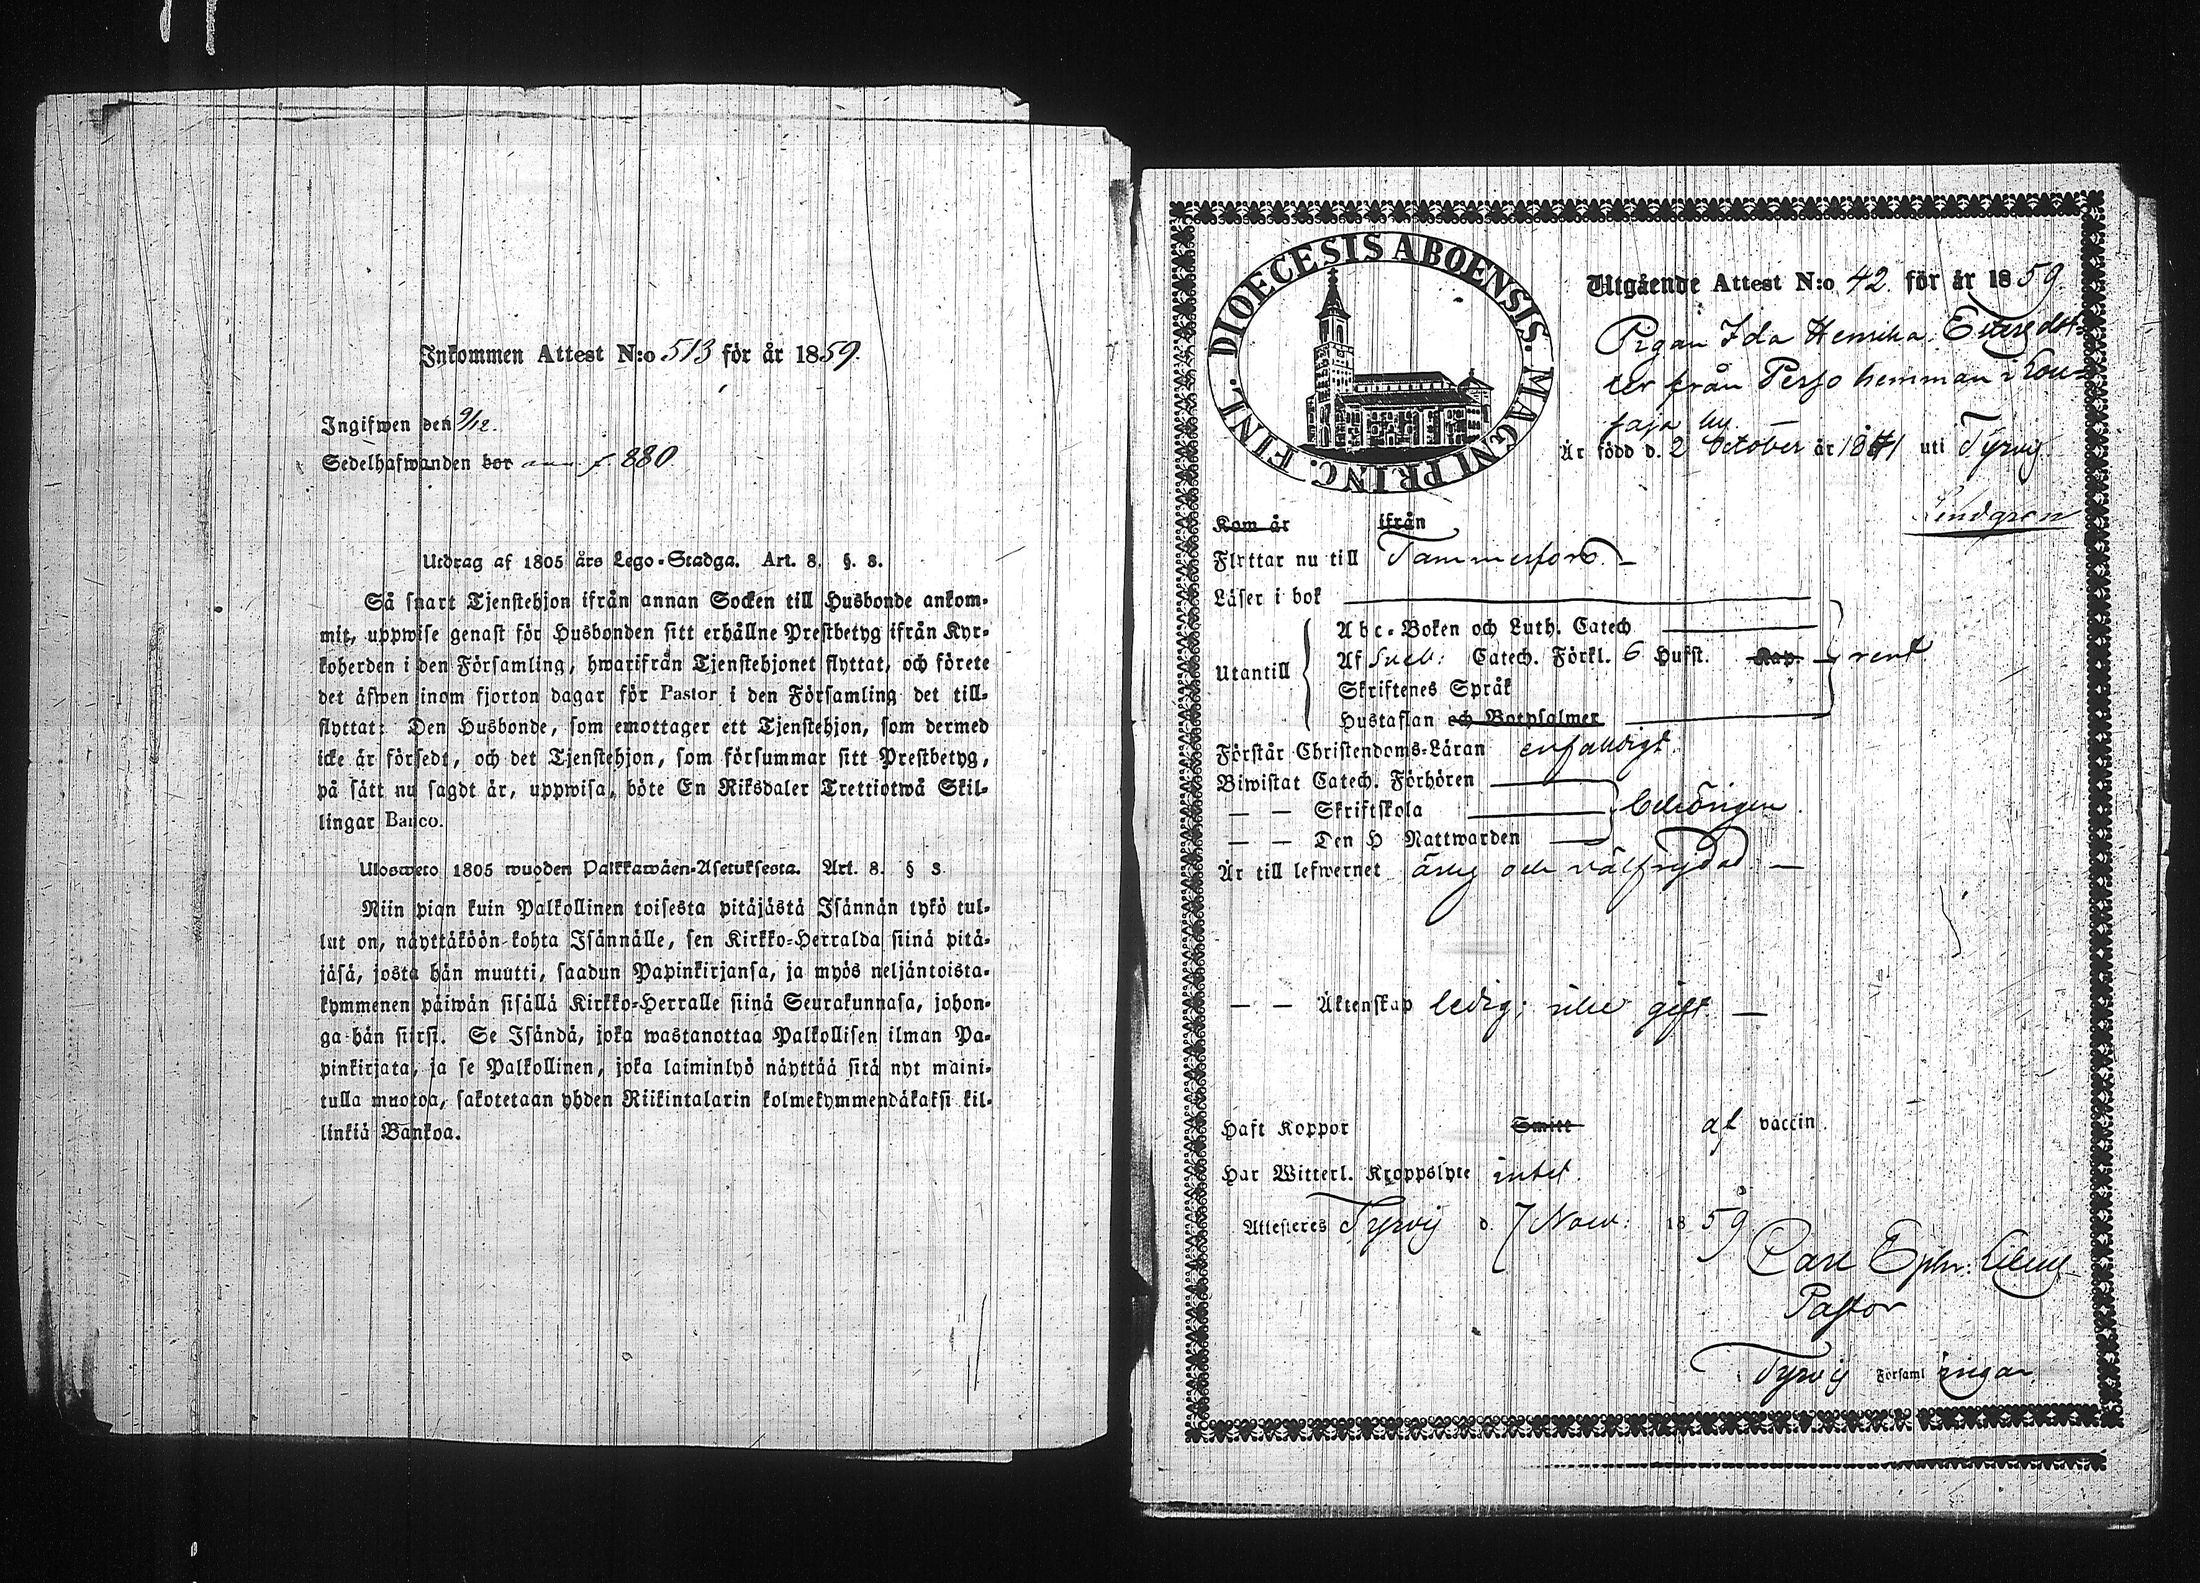 Inkommen Attest N:o 513 för år 1859.
Ingifwen den 9/12.
Sedelhafwanden bor ann. f. 880
Utdrag af 1805 års Lego-Stadga. Art. 8. §. 8.
Så snart Tjenstehjon ifrån annan Socken till Husbonde ankom-
mit, uppwise genast för Husbonden sitt erhållne Prestbetyg ifrån Kyr-
koherden i den Församling, hwarifrån Tjenstehjonet flyttat, och förete
det äfwen inom fjorton dagar för Pastor i den Församling det till-
flyttat: Den Husbonde, som emottager ett Tjenstehjon, som dermed
icke är försedt, och det Tjenstehjon, som försummar sitt Prestbetyg,
på sätt nu sagdt är, uppwisa, böte En Riksdaler Trettiotwå Skil-
lingar Banco.
Ulosweto 1805 wuoden Palkkawäen-Asetuksesta. Art. 8. § 8.
Niin pian kuin Palkollinen toisesta pitäjästä Isännän tykö tul-
lut on, näyttäköön kohta Isännälle, sen Kirkko-Herralda siinä pitä-
jäsä, josta hän muutti, saadun Papinkirjansa, ja myös neljäntoista-
kymmenen päiwän sisällä Kirkko-Herralle siinä Seurakunnasa, johon-
ga hän siirsi. Se Isändä, joka wastanottaa Palkollisen ilman Pa-
pinkirjata, ja se Palkollinen, joka laiminlyö näyttää sitä nyt maini-
tulla muotoa, sakotetaan yhden Riikintalarin kolmekymmendäkaksi kil-
linkiä Bankoa.
DIOECESIS ABOENSIS. MAGNI PRINC. FINL.
Utgående Attest N:o 42 för år 1859.
Pigan Ida Henrika
ter från Perjo hemman i
by
Är född d. 2 October år 1841 uti Tyrvis.
Lindgren
Kom år ifrån
Flyttar nu till Tammerfors.
Läser i bok
Utantill
Abc-Boken och Luth. Catech
Af Sveb: Catech. Förkl. 6 Hufst. Kap. rent
Skriftenes Språk
Hustaflan och Botpsalmer
Förstår Christendoms-Läran enfaldigt.
Biwistat Catech. Förhören
— — Skriftskola behörigen.
— — Den H Nattwarden
Är till lefwernet ärlig och välfrejdad —
— — Äktenskap ledig; icke gift —
Haft Koppor Smitt af vaccin.
Har Witterl. Kroppslyte intet.
Attesteres Tyrvis d. 7 Nov: 1859
Carl Ephr:
Pastor
i Tyrvis Församlingar.